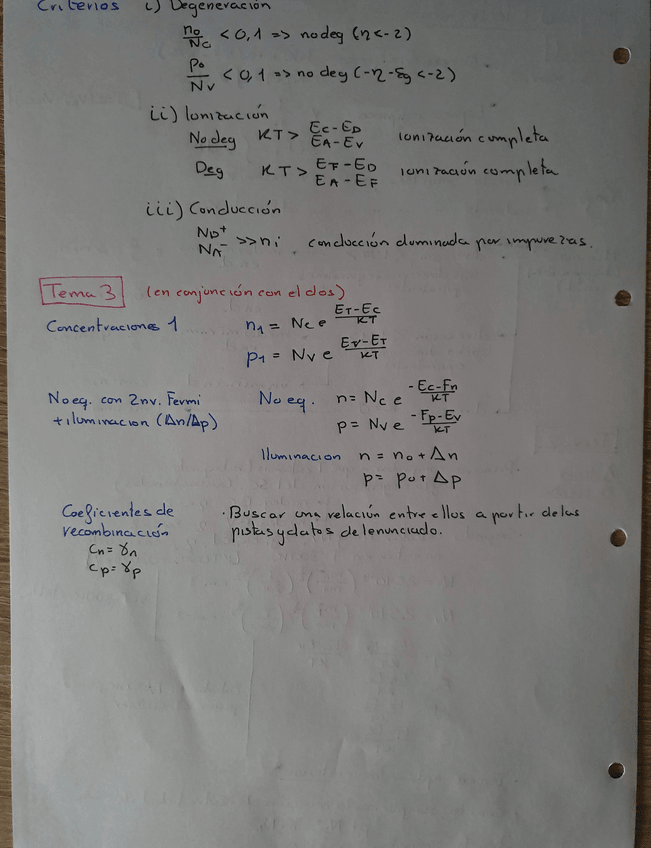 Criterios i) Degeneración
no/Nc < 0,1 => no deg (η<-2)
po/Nv < 0,1 => no deg (-η-εg<-2)
ii) Ionización
No deg KT > Ec-ED / EA-Ev ionización completa
Deg KT > EF-ED / EA-EF ionización completa
iii) Conducción
ND+ / NA- >> ni conducción dominada por impurezas.
Tema 3 (en conjunción con el dos)
Concentraciones 1 n1 = Nc e^(ET-Ec/KT)
p1 = Nv e^(Ev-ET/KT)
No eq. con 2nv. Fermi No eq. n = Nc e^(-Ec-Fn/KT)
+iluminacion (Δn/Δp) p = Nv e^(-Fp-Ev/KT)
Iluminacion n = no + Δn
p = po + Δp
Coeficientes de · Buscar una relación entre ellos a partir de las
recombinación pistas y datos del enunciado.
Cn = γn
Cp = γp